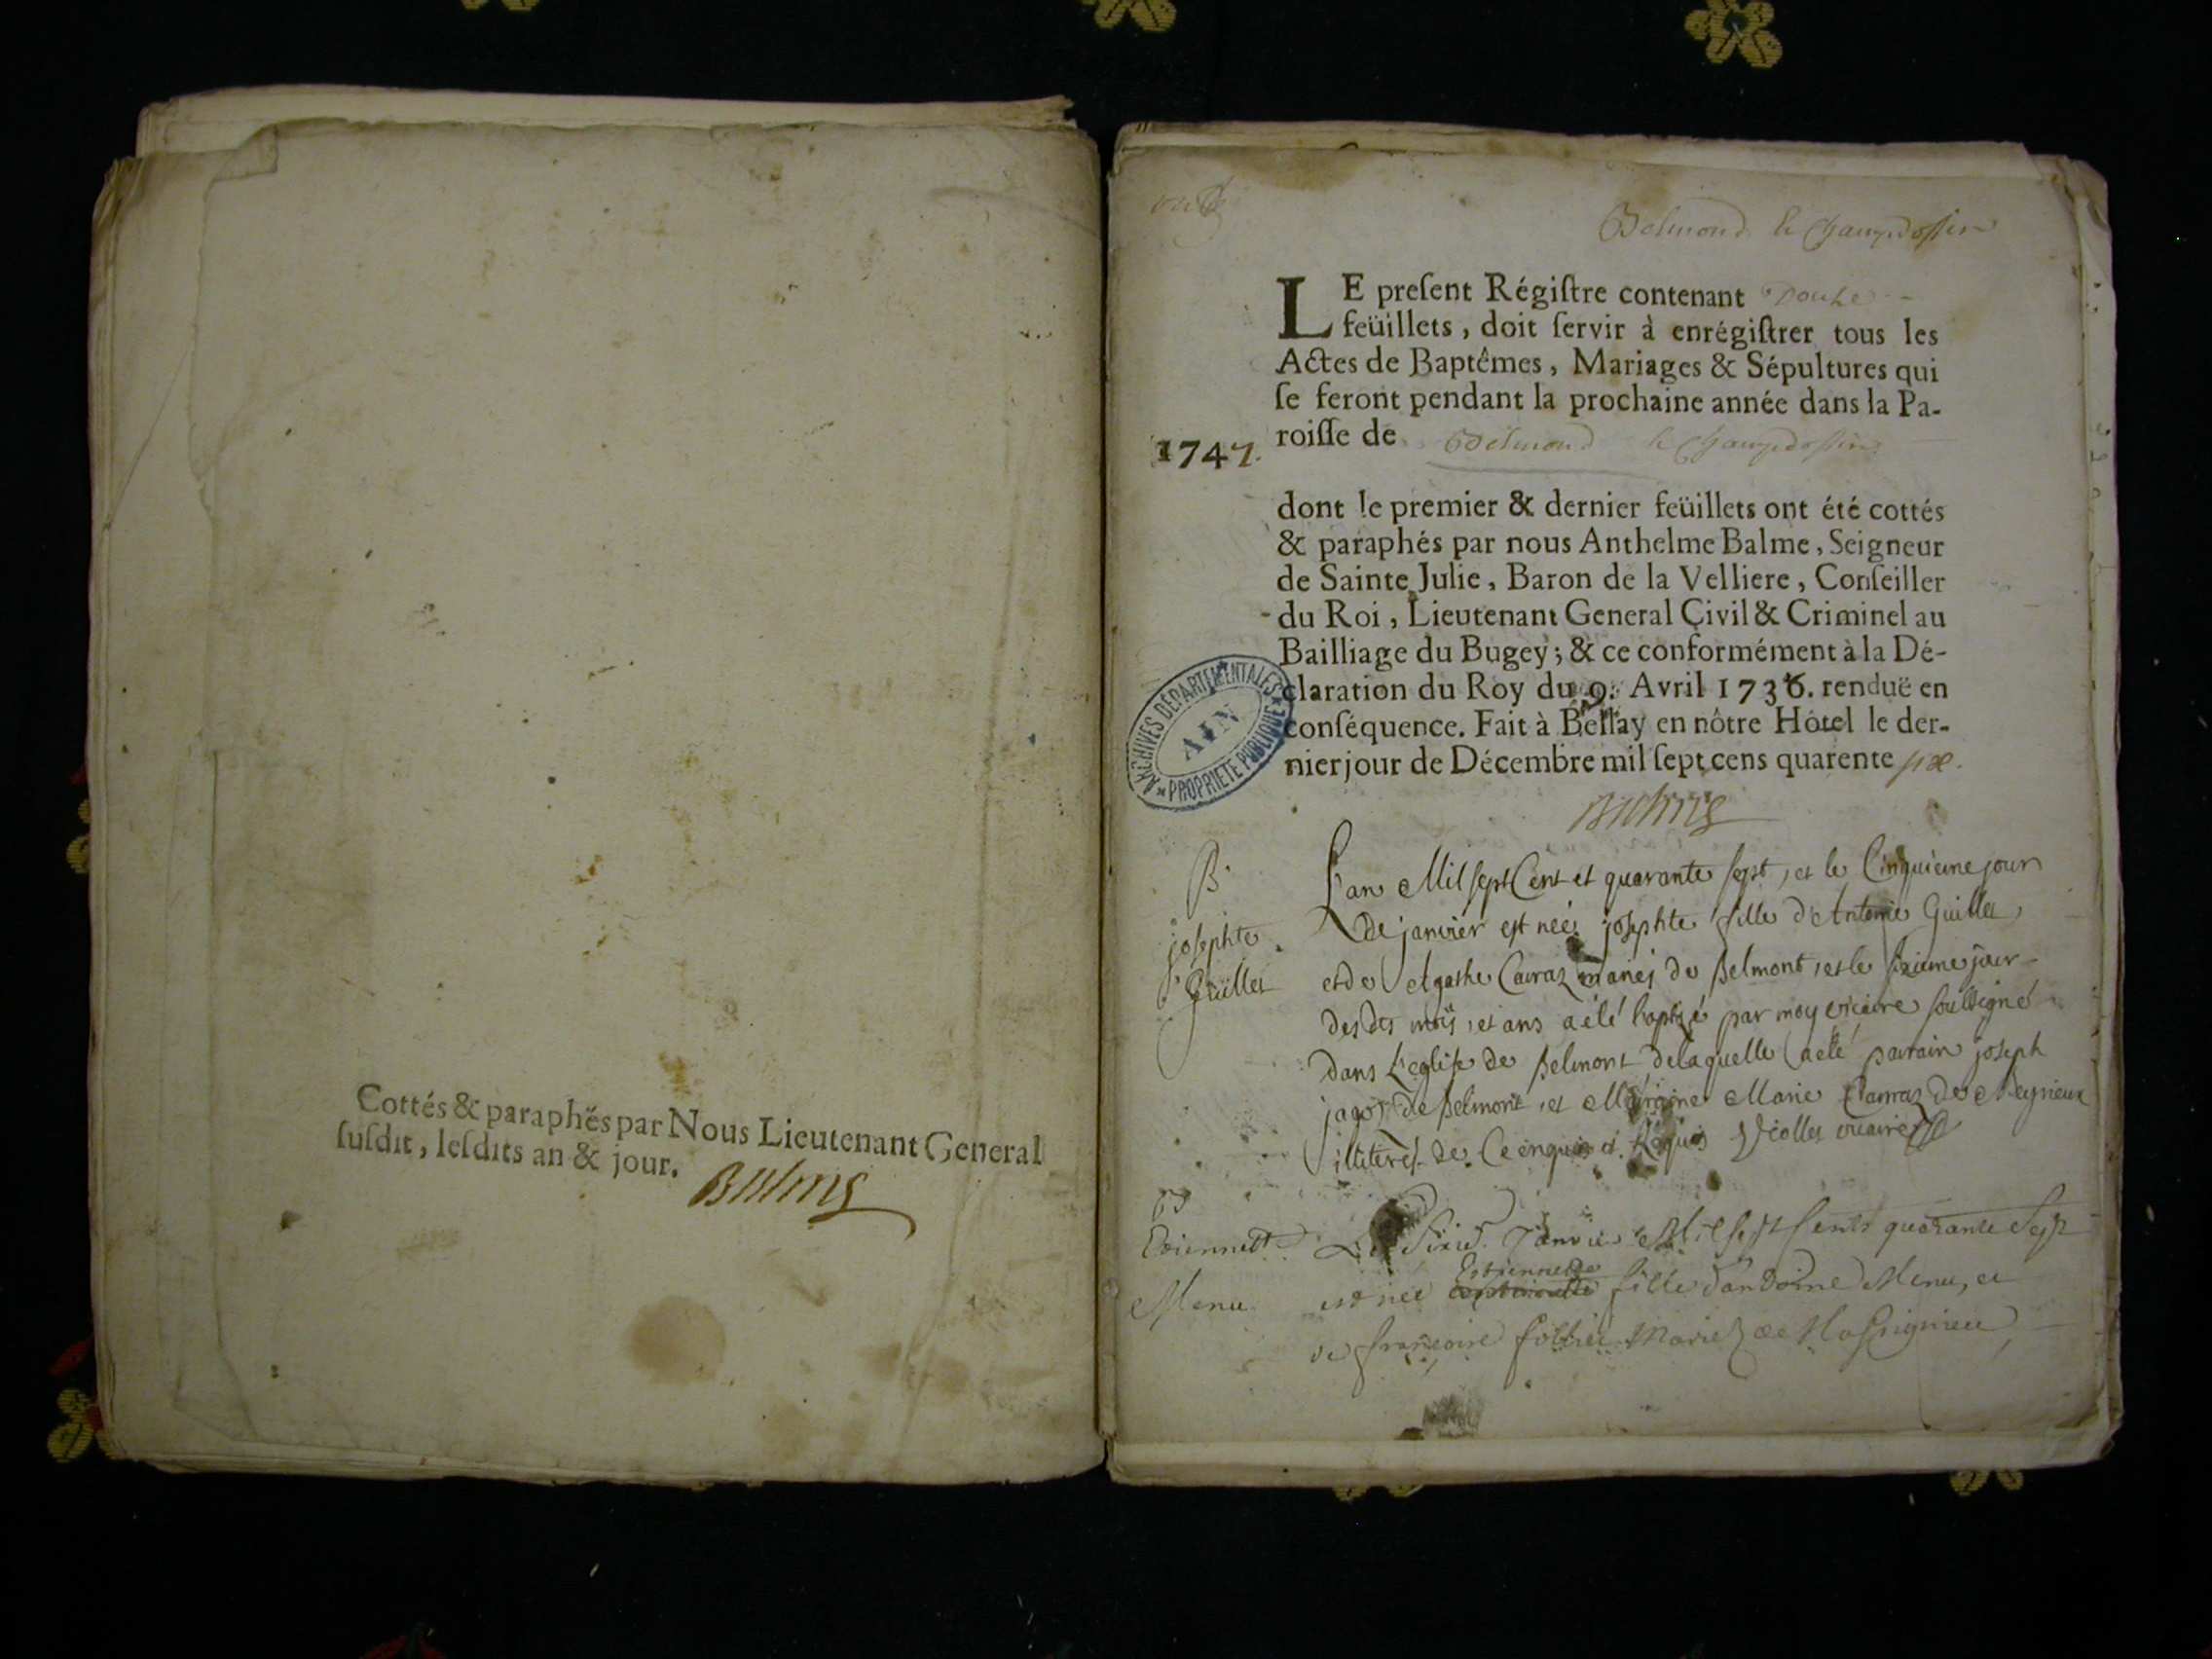 Cottés & paraphés par Nous Lieutenant General
susdit, lesdits an & jour.
Balme
Belmond le Champdossin
LE present Régistre contenant Douze
feüillets, doit servir à enrégistrer tous les
Actes de Baptêmes, Mariages & Sépultures qui
se feront pendant la prochaine année dans la Pa-
roisse de Belmond le Champdossin
1747.
dont le premier & dernier feüillets ont été cottés
& paraphés par nous Anthelme Balme, Seigneur
de Sainte Julie, Baron de la Velliere, Conseiller
du Roi, Lieutenant General Civil & Criminel au
Bailliage du Bugey; & ce conformément à la Dé-
claration du Roy du 9. Avril 1736. renduë en
conséquence. Fait à Bellay en nôtre Hôtel le der-
nier jour de Décembre mil sept cens quarente six.
ARCHIVES DÉPARTEMENTALES
AIN
PROPRIETE PUBLIQUE
Balme
B.
josephte
Guillet
L'an Mil sept Cent et quarante sept, et le Cinquieme jour
de janvier est née josephte fille d'Antoine Guillet,
et de Agathe Carraz mariés de Belmont, et le sixieme jour
des dts mois, et ans a été baptizé par moy vicaire soussigné
dans L'eglise de Belmont de laquelle a été parrain joseph
jagot de Belmont, et Marraine Marie Carraz de Meyrieux
illiterés de Ce enquis et Requis vicaire
B
Etiennette
Menu
Le Sixie. Janvier Mil Sept Cents quarante Sept
est née Estiennette fille d'andoine Menu, et
de françoise mariez de Massignieu